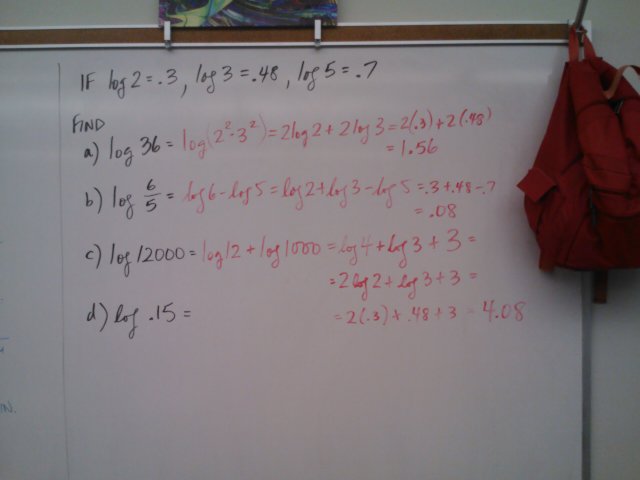 IF log 2 = .3, log 3 = .48, log 5 = .7
FIND
a) log 36 = log(2²·3²) = 2log 2 + 2log 3 = 2(.3) + 2(.48)
= 1.56
b) log 6/5 = log 6 - log 5 = log 2 + log 3 - log 5 = .3 + .48 - .7
= .08
c) log 12000 = log 12 + log 1000 = log 4 + log 3 + 3 =
= 2 log 2 + log 3 + 3 =
d) log .15 =
= 2(.3) + .48 + 3 = 4.08
IN.